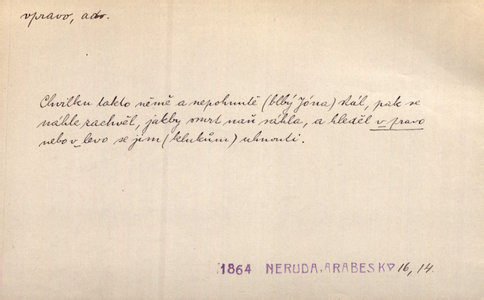 vpravo, adv.
Chvilku takto němě a nepohnutě (blbý Jóna) stál, pak se
náhle zachvěl, jakby smrt naň sáhla, a hleděl v pravo
nebo v levo se jim (klukům) uhnouti.
1864 NERUDA. ARABESKY 16, 14.